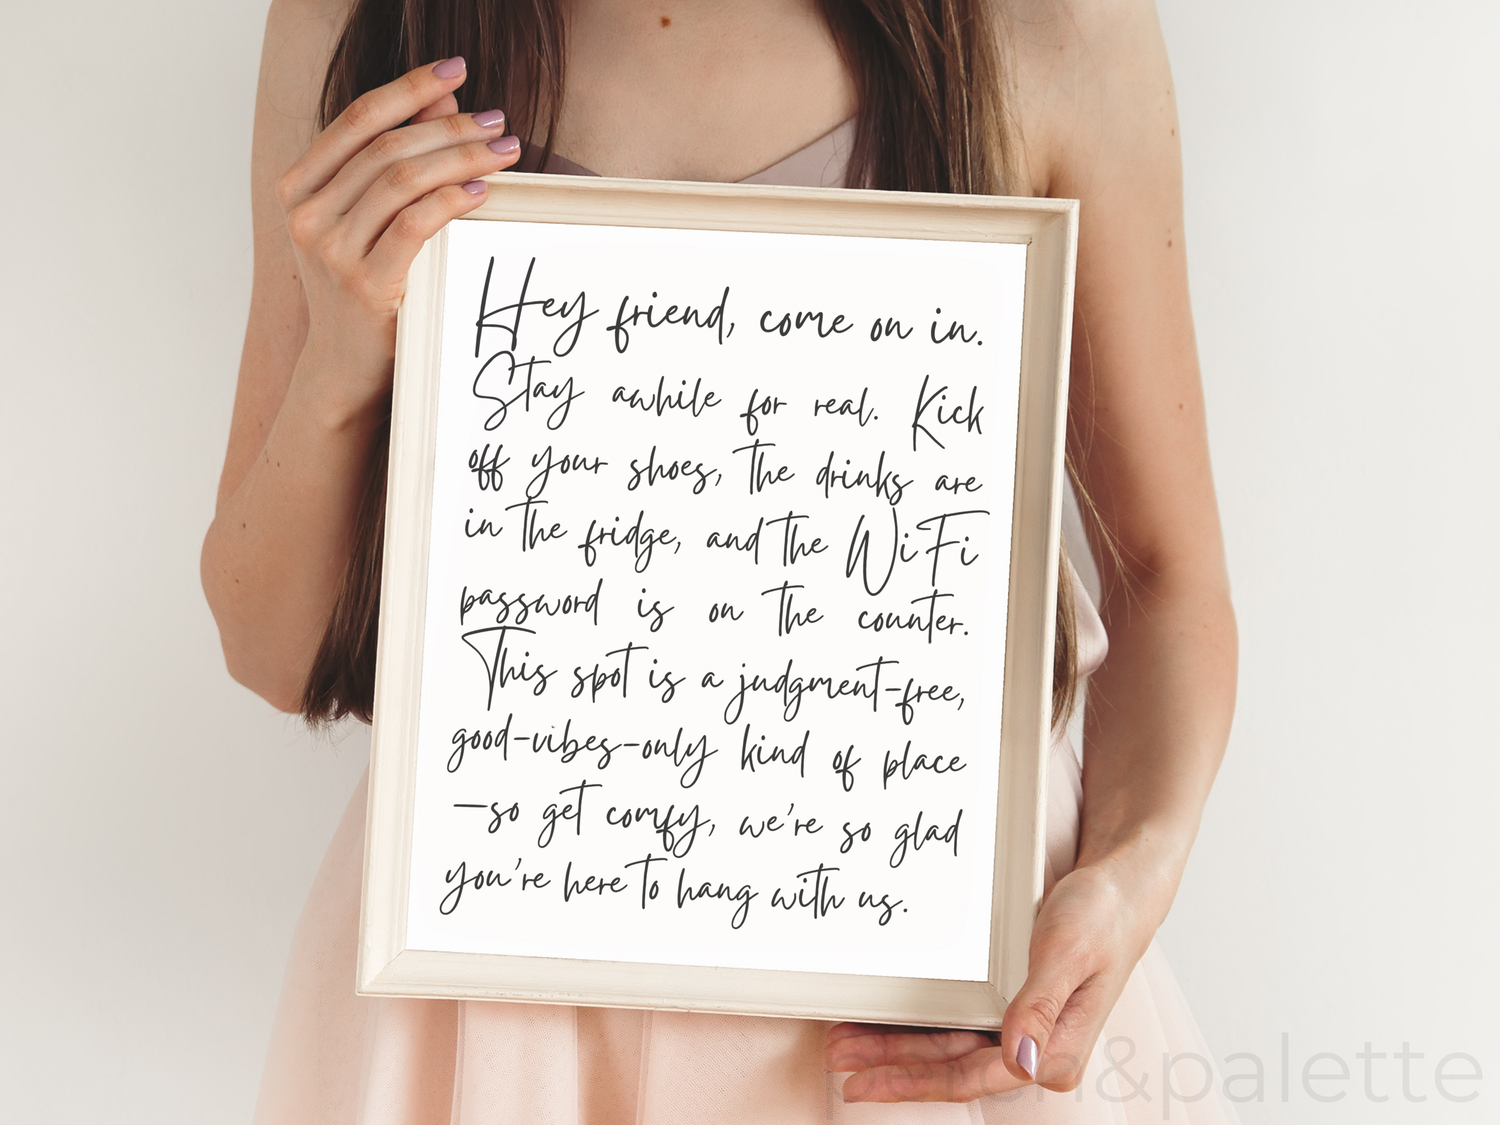 Hey friend, come on in.
Stay awhile for real. Kick
off your shoes, the drinks are
in the fridge, and the WiFi
password is on the counter.
This spot is a judgment-free,
good-vibes-only kind of place
—so get comfy, we're so glad
you're here to hang with us.
perch&palette